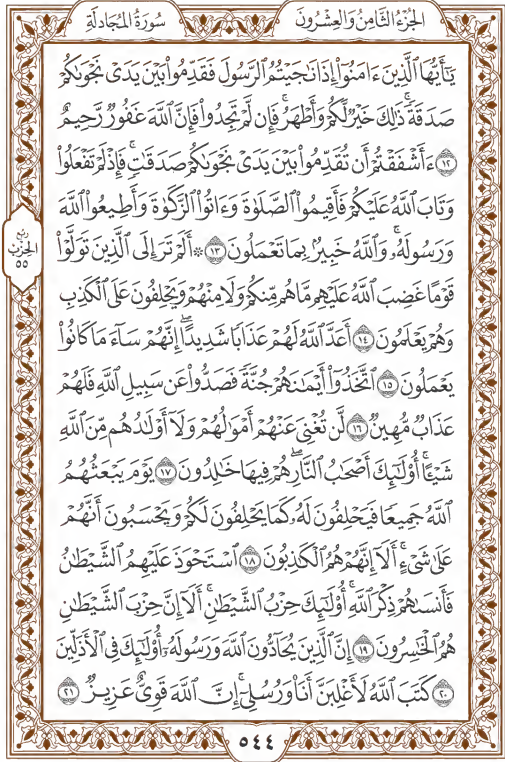 سُورَةُ المُجَادلَةِ
الجُزْءُ الثَّامِنُ وَالعِشْرُونَ
يَٰٓأَيُّهَا ٱلَّذِينَ ءَامَنُوٓا۟ إِذَا نَٰجَيْتُمُ ٱلرَّسُولَ فَقَدِّمُوا۟ بَيْنَ يَدَىْ نَجْوَىٰكُمْ
صَدَقَةً ۚ ذَٰلِكَ خَيْرٌ لَّكُمْ وَأَطْهَرُ ۚ فَإِن لَّمْ تَجِدُوا۟ فَإِنَّ ٱللَّهَ غَفُورٌ رَّحِيمٌ
١٢ ءَأَشْفَقْتُمْ أَن تُقَدِّمُوا۟ بَيْنَ يَدَىْ نَجْوَىٰكُمْ صَدَقَٰتٍ ۚ فَإِذْ لَمْ تَفْعَلُوا۟
وَتَابَ ٱللَّهُ عَلَيْكُمْ فَأَقِيمُوا۟ ٱلصَّلَوٰةَ وَءَاتُوا۟ ٱلزَّكَوٰةَ وَأَطِيعُوا۟ ٱللَّهَ
وَرَسُولَهُۥ ۚ وَٱللَّهُ خَبِيرٌۢ بِمَا تَعْمَلُونَ ١٣ ۞ أَلَمْ تَرَ إِلَى ٱلَّذِينَ تَوَلَّوْا۟
ربع
الحزب
٥٥
قَوْمًا غَضِبَ ٱللَّهُ عَلَيْهِم مَّا هُم مِّنكُمْ وَلَا مِنْهُمْ وَيَحْلِفُونَ عَلَى ٱلْكَذِبِ
وَهُمْ يَعْلَمُونَ ١٤ أَعَدَّ ٱللَّهُ لَهُمْ عَذَابًا شَدِيدًا ۖ إِنَّهُمْ سَآءَ مَا كَانُوا۟
يَعْمَلُونَ ١٥ ٱتَّخَذُوٓا۟ أَيْمَٰنَهُمْ جُنَّةً فَصَدُّوا۟ عَن سَبِيلِ ٱللَّهِ فَلَهُمْ
عَذَابٌ مُّهِينٌ ١٦ لَّن تُغْنِىَ عَنْهُمْ أَمْوَٰلُهُمْ وَلَآ أَوْلَٰدُهُم مِّنَ ٱللَّهِ
شَيْـًٔا ۚ أُو۟لَٰٓئِكَ أَصْحَٰبُ ٱلنَّارِ ۖ هُمْ فِيهَا خَٰلِدُونَ ١٧ يَوْمَ يَبْعَثُهُمُ
ٱللَّهُ جَمِيعًا فَيَحْلِفُونَ لَهُۥ كَمَا يَحْلِفُونَ لَكُمْ وَيَحْسَبُونَ أَنَّهُمْ
عَلَىٰ شَىْءٍ ۚ أَلَآ إِنَّهُمْ هُمُ ٱلْكَٰذِبُونَ ١٨ ٱسْتَحْوَذَ عَلَيْهِمُ ٱلشَّيْطَٰنُ
فَأَنسَىٰهُمْ ذِكْرَ ٱللَّهِ ۚ أُو۟لَٰٓئِكَ حِزْبُ ٱلشَّيْطَٰنِ ۚ أَلَآ إِنَّ حِزْبَ ٱلشَّيْطَٰنِ
هُمُ ٱلْخَٰسِرُونَ ١٩ إِنَّ ٱلَّذِينَ يُحَآدُّونَ ٱللَّهَ وَرَسُولَهُۥٓ أُو۟لَٰٓئِكَ فِى ٱلْأَذَلِّينَ
٢٠ كَتَبَ ٱللَّهُ لَأَغْلِبَنَّ أَنَا۠ وَرُسُلِىٓ ۚ إِنَّ ٱللَّهَ قَوِىٌّ عَزِيزٌ ٢١
٥٤٤